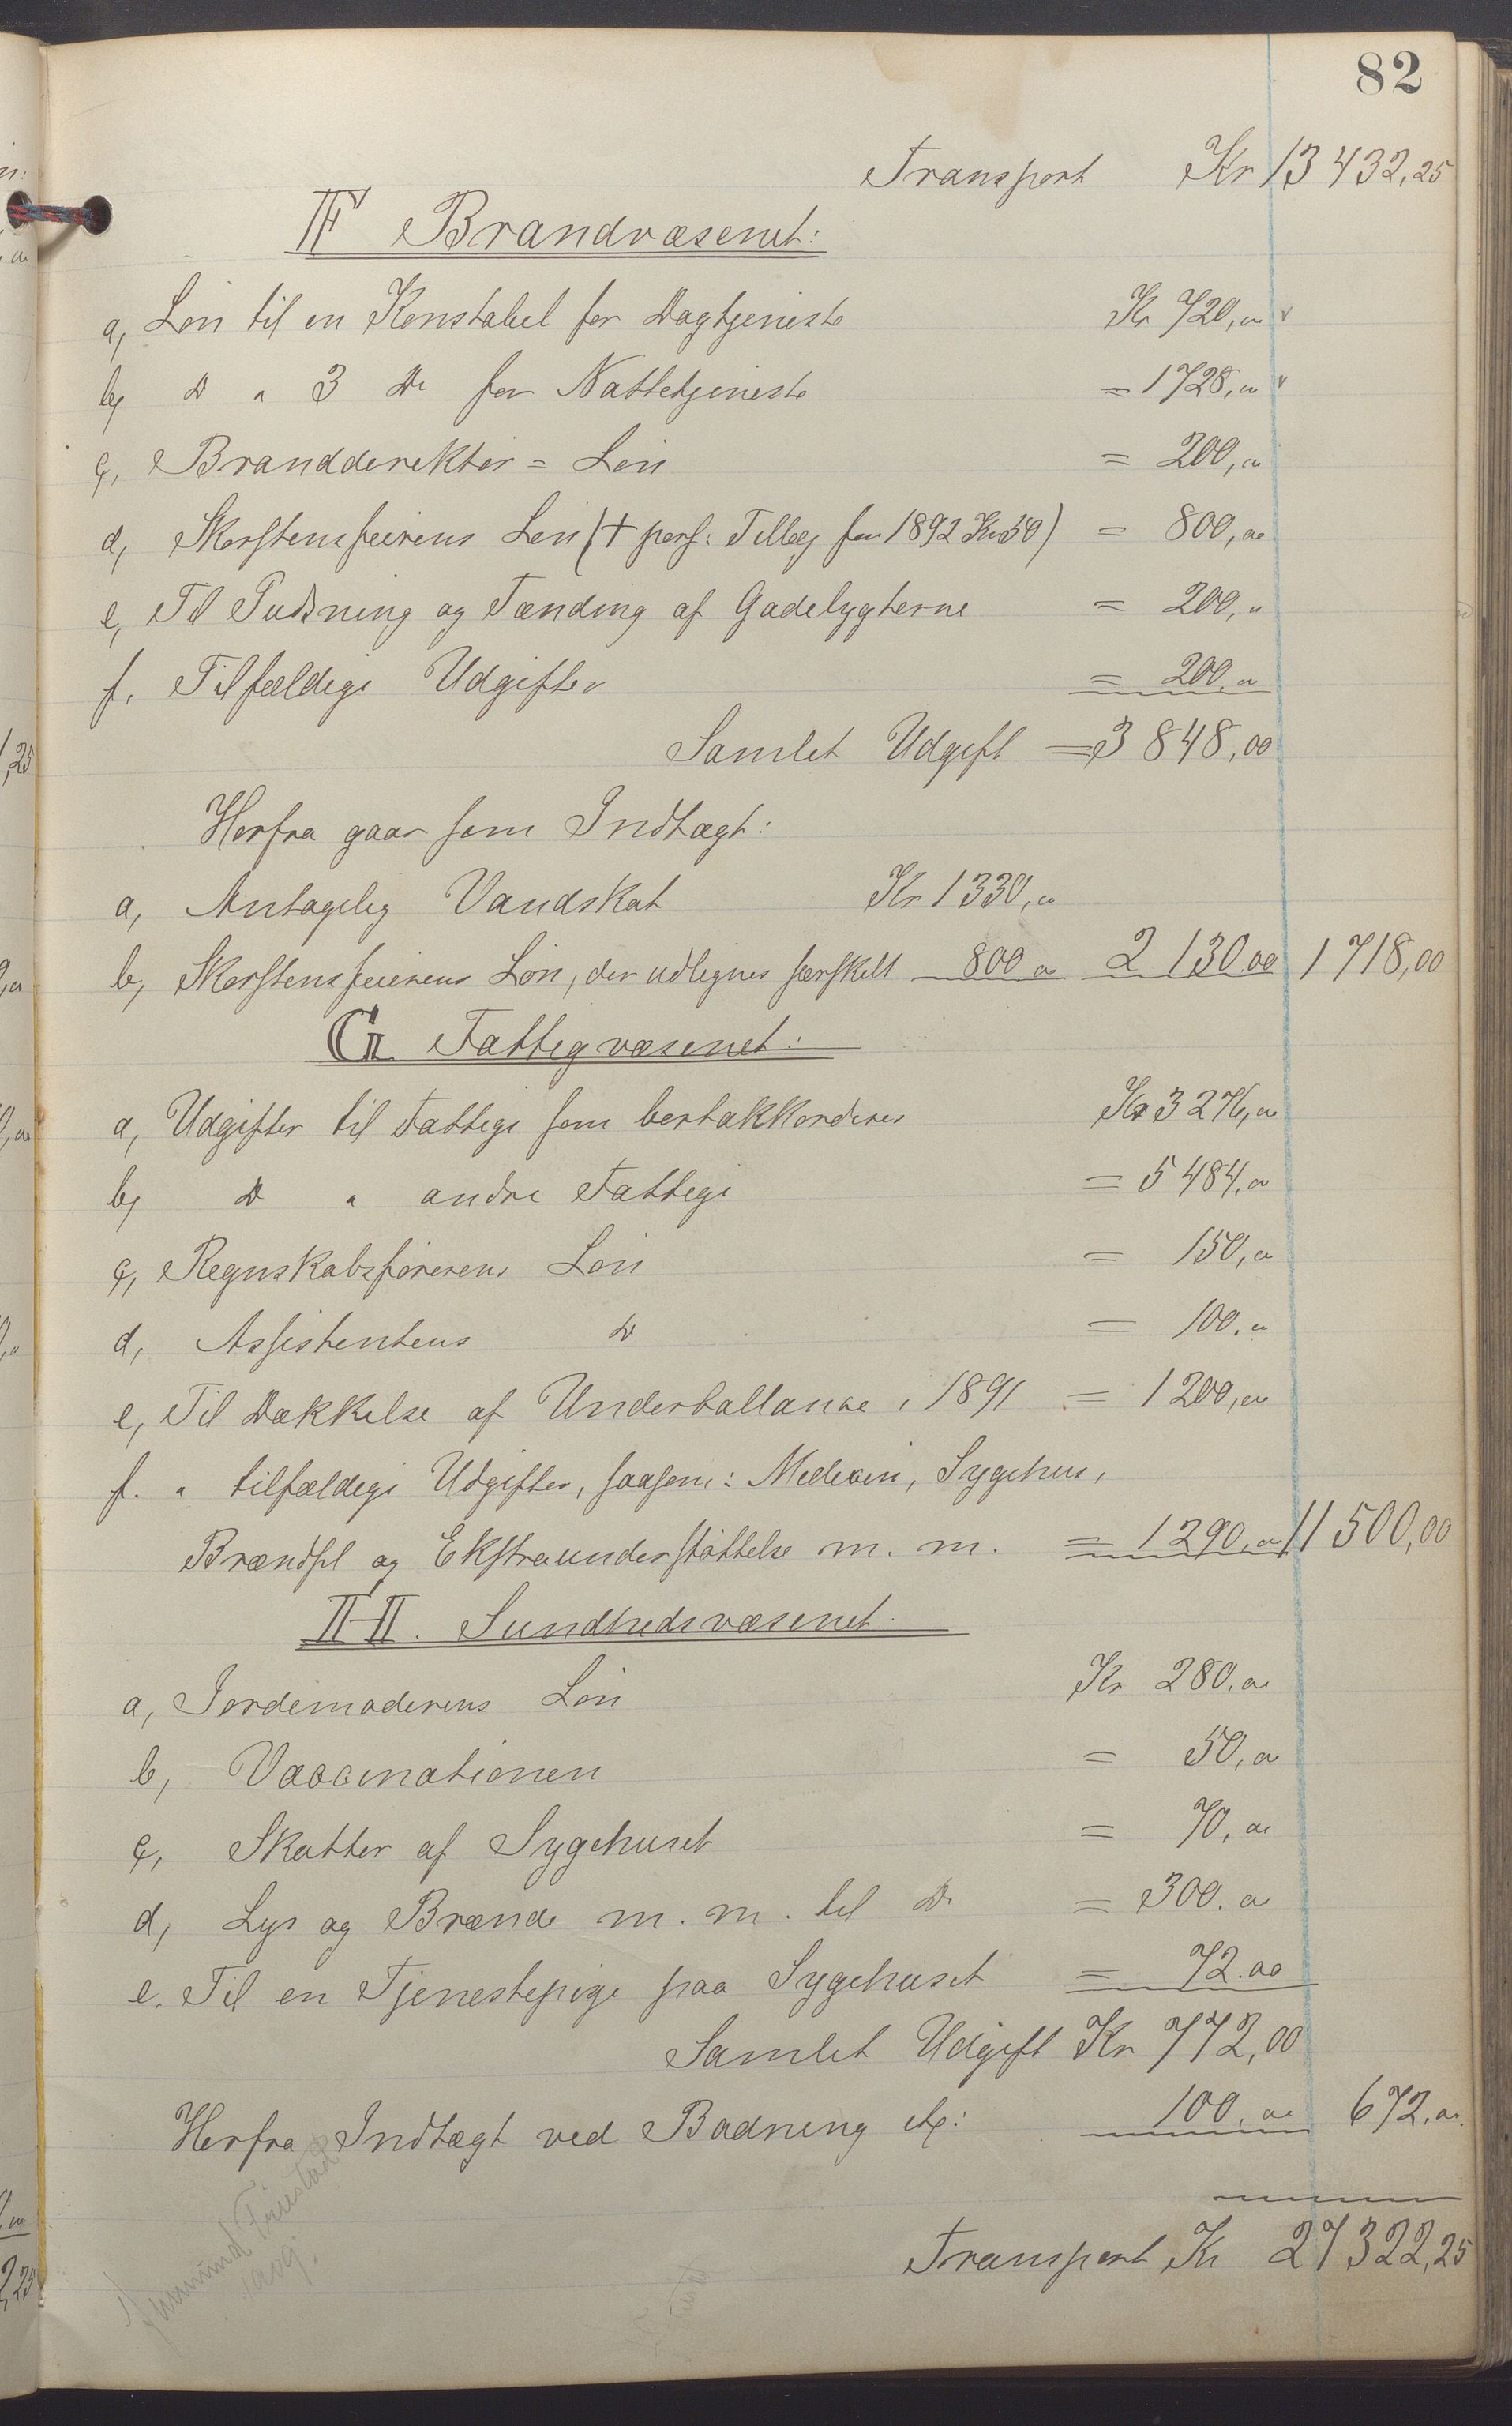 82
Transport Kr 13 432,25
F Brandvæsenet:
a, Løn til en Konstabel for Dagtjeneste Kr 720,00 v
b, Do " 3 Do for Nattetjeneste = 1728,00 v
c, Branddirektør = Løn = 200,00
d, Skorstensfeierens Løn (+ pers: Tillæg for 1892 Kr 50) = 800,00
e, Til Pudsning og Tænding af Gadelygterne = 200,00
f. Tilfældige Udgifter = 200,00
Samlet Udgift = 3 848,00
Herfra gaar som Indtægt:
a, Antagelig Vandskat Kr 1330,00
b, Skorstensfeierens Løn, der udlignes særskilt 800 00 2 130.00 1 718,00
G Fattigvæsenet:
a, Udgifter til Fattige som bortakkorderes Kr 3 276,00
b, Do " andre Fattige = 5 484,00
c, Regnskabsførerens Løn = 150,00
d, Assistentens Do = 100.00
e, Til Dækkelse af Underballance i 1891 = 1 200,00
f. " tilfældige Udgifter, saasom: Medecin, Sygehus,
Brændsel og Ekstraunderstøttelse m. m. = 1 290,00 11 500,00
H. Sundhedsvæsenet.
a, Jordemoderens Løn Kr 280,00
b, Vaccinationen = 50,00
c, Skatter af Sygehuset = 70,00
d, Lys og Brænde m. m. til Do = 300.00
e. Til en Tjenestepige paa Sygehuset = 72.00
Samlet Udgift Kr 772,00
Herfra Indtægt ved Badning etc: 100,00 672,00
Transport Kr 27 322,25